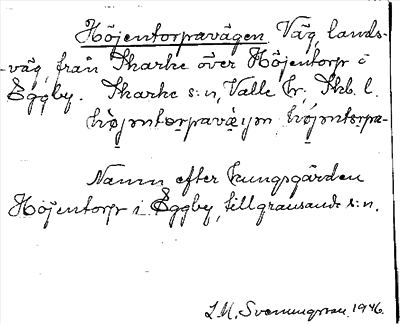 Höjentorpavägen Väg, lands-
-väg, från Skarke över Höjentorp i
Eggby. Skarke s:n, Valle hr, Skb. l.
höjntorpavägən höjntorpa-
Namn efter kungsgården
Höjentorp i Eggby, tillgränsande s:n.
L.M. Svenungsson 1946.